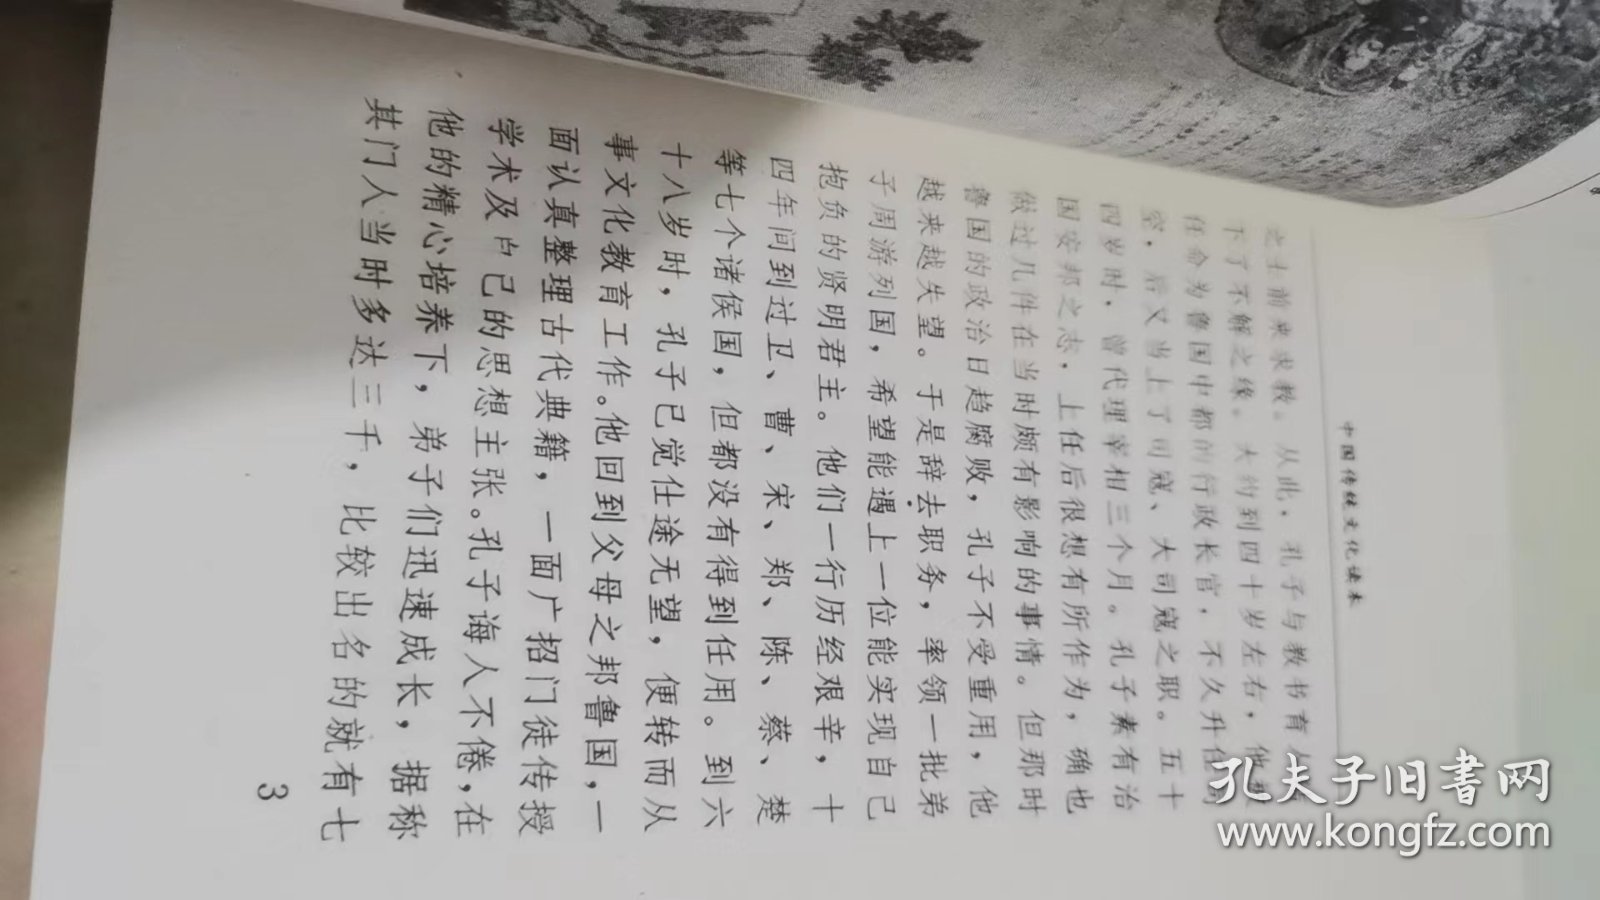 中国传统文化读本
之士前来求教。从此，孔子与教书育人
下了不解之缘。大约到四十岁左右，他
任命为鲁国中都的行政长官，不久升任
空，后又当上了司寇、大司寇之职。五十
四岁时，曾代理宰相三个月。孔子素有治
国安邦之志，上任后很想有所作为，确也
做过几件在当时颇有影响的事情。但那时
鲁国的政治日趋腐败，孔子不受重用，他
越来越失望。于是辞去职务，率领一批弟
子周游列国，希望能遇上一位能实现自己
抱负的贤明君主。他们一行历经艰辛，十
四年间到过卫、曹、宋、郑、陈、蔡、楚
等七个诸侯国，但都没有得到任用。到六
十八岁时，孔子已觉仕途无望，便转而从
事文化教育工作。他回到父母之邦鲁国，一
面认真整理古代典籍，一面广招门徒传授
学术及自己的思想主张。孔子诲人不倦，在
他的精心培养下，弟子们迅速成长，据称
其门人当时多达三千，比较出名的就有七
3
孔夫子旧书网
www.kongfz.com